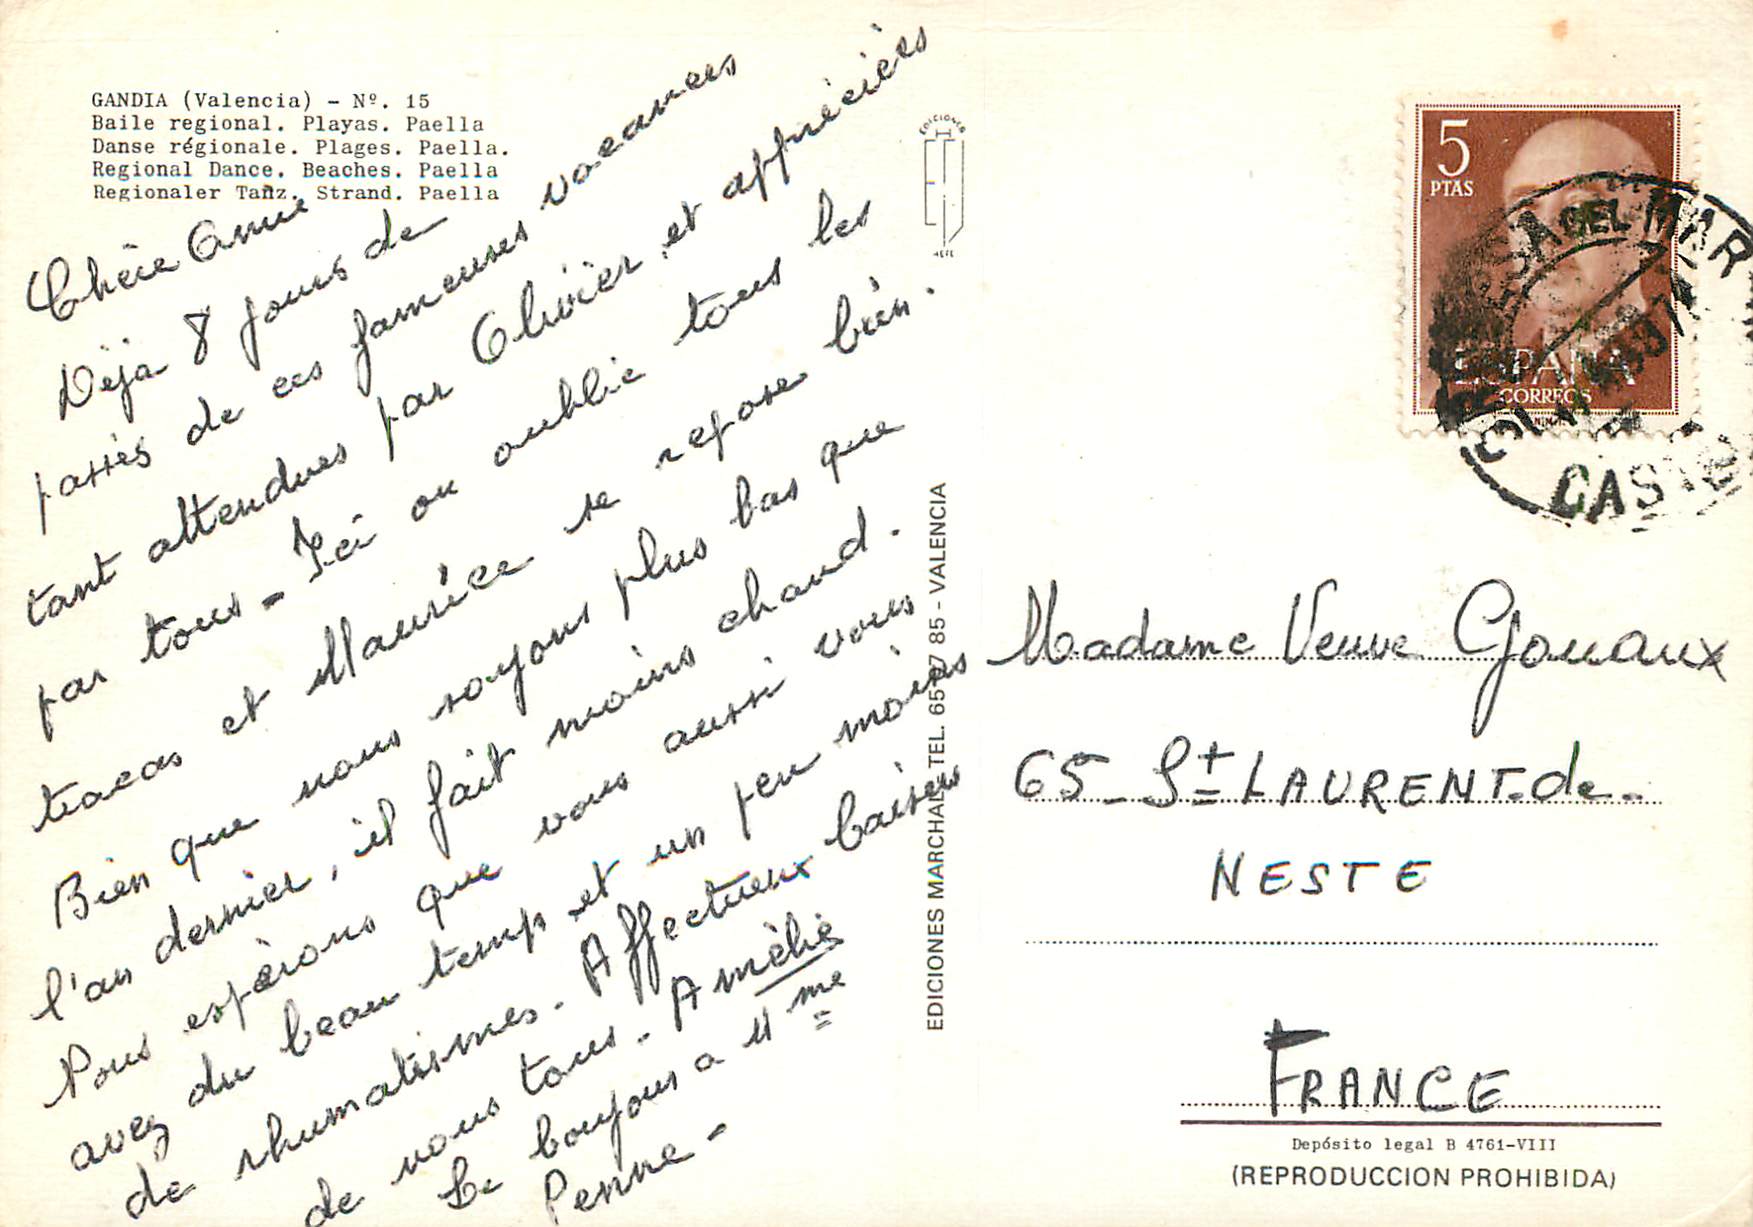 GANDIA (Valencia) - Nº. 15
Baile regional. Playas. Paella
Danse régionale. Plages. Paella.
Regional Dance. Beaches. Paella
Regionaler Tanz. Strand. Paella
Chère Anne
Déjà 8 jours de
passés de ces fameuses vacances
tant attendues par Olivier et appréciées
par tous - Ici on oublie tous les
tracas et Maurice se repose bien.
Bien que nous soyons plus bas que
l'an dernier, il fait moins chaud.
Nous espérons que vous aussi vous
avez du beau temps et un peu moins
de rhumatismes. Affectueux baisers
de nous tous. Amélie
Le bonjour a Mme
Penne -
EDICIONES
HEFE
EDICIONES MARCHAL. TEL. 65 7 85 - VALENCIA
5
PTAS
ESPAÑA
CORREOS
DEL MAR
CAST
Madame Veuve Gouaux
65 - St LAURENT-de-
NESTE
FRANCE
Depósito legal B 4761-VIII
(REPRODUCCION PROHIBIDA)